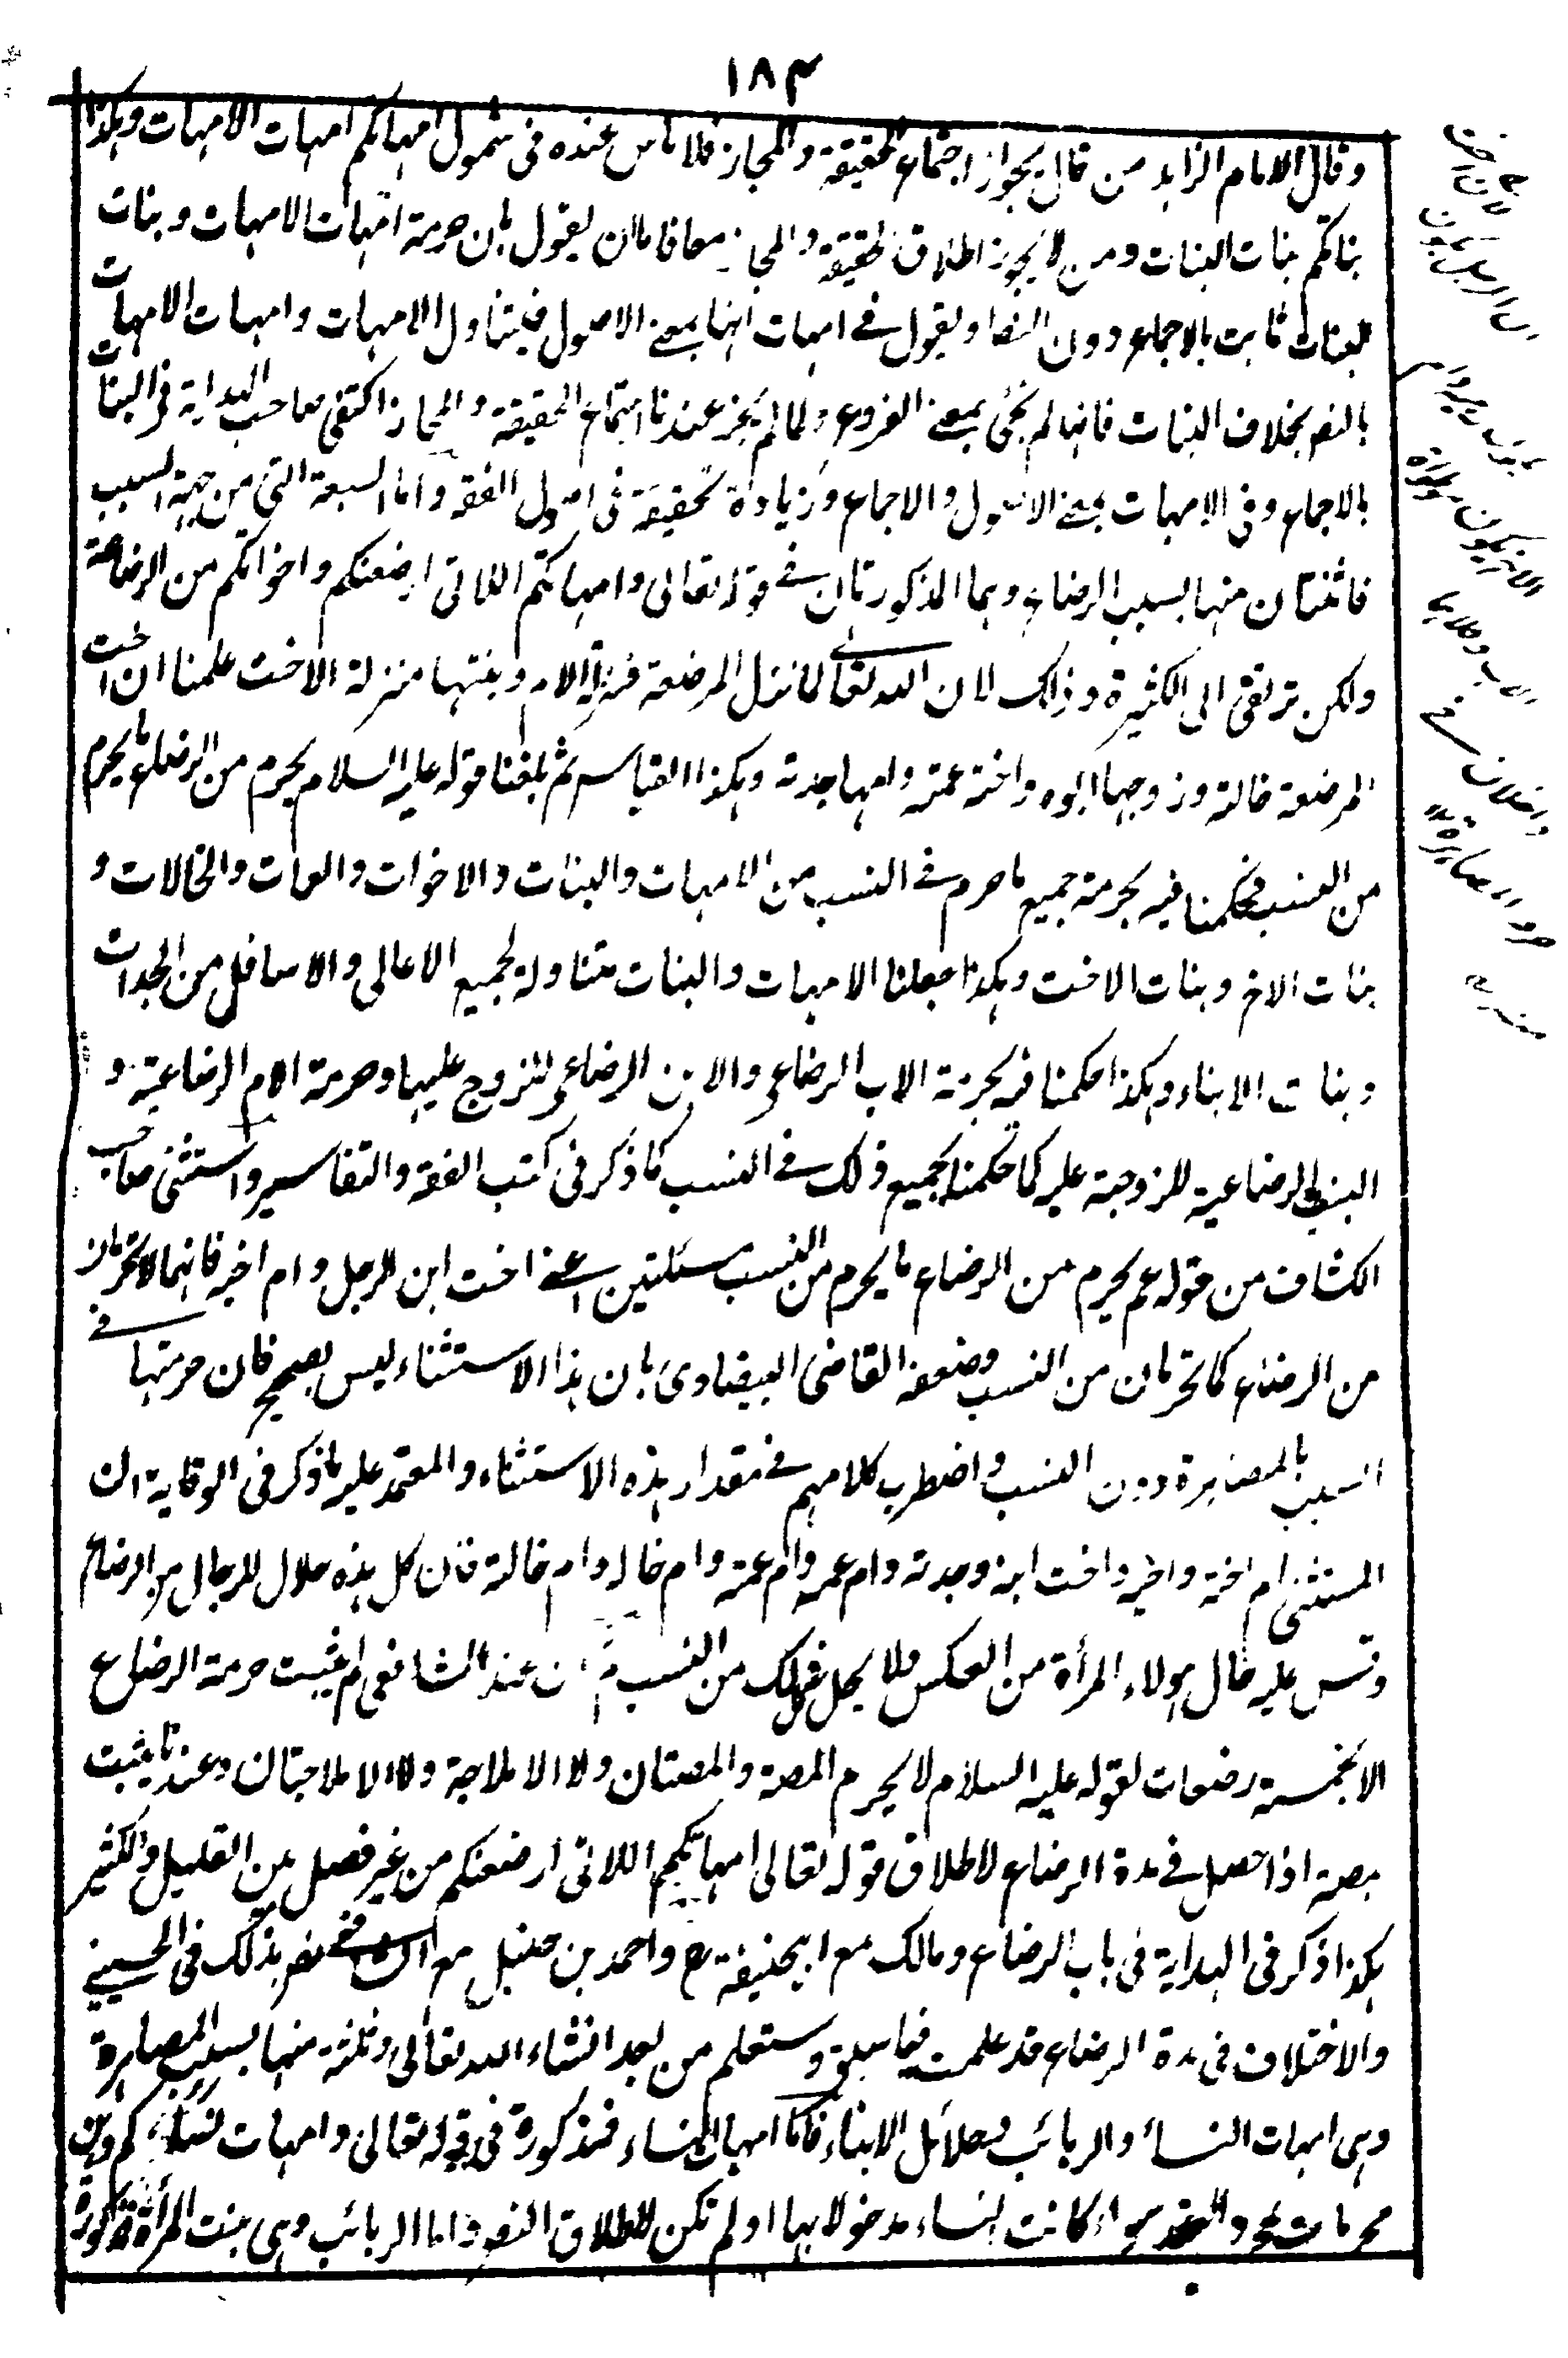 ١٨٣
وقال الامام الزاهد من قال بجواز اجتماع الحقيقة والمجاز فلا باس عنده فى شمول امهاتكم امهات الامهات وهكذا
بناتكم بنات البنات ومن لا يجوز اطلاق الحقيقة والمجاز معا فاما ان يقول بان حرمة امهات الامهات وبنات
البنات ثابت بالاجماع دون النص او يقول فے امهات انها بمعنے الاصول فيتناول الامهات وامهات الامهات
بالنص بخلاف البنات فانها لم تجئ بمعنے الفروع ولما لم يجز عندنا اجتماع الحقيقة والمجاز اكتفى صاحب الهداية فى البنات
بالاجماع وفى الامهات بمعنے الاصول والاجماع وزيادة تحقيقه فى اصول الفقه واما السبعة التى من جهة السبب
فاثنتان منها بسبب الرضاع وهما المذكورتان فے قوله تعالى وامهاتكم اللاتى ارضعنكم واخواتكم من الرضاعة
ولكن ترتقى الى الكثيرة وذلك لان الله تعالى لما نزل المرضعة منزلة الام وبنتها منزلة الاخت علمنا ان اخت
المرضعة خالته وزوجها ابوه واخته عمته وامها جدته وهكذا القياس ثم بلغنا قوله عليه السلام يحرم من الرضاع ما يحرم
من النسب فحكمنا فيه بحرمة جميع ما حرم فے النسب من الامهات والبنات والاخوات والعمات والخالات و
بنات الاخ وبنات الاخت وهكذا جعلنا الامهات والبنات متناولة لجميع الاعالى والاسافل من الجدات
وبنات الابناء وهكذا حكمنا فيه بحرمة الاب الرضاعى والابن الرضاعى للزوج عليها وحرمة الام الرضاعية و
البنت الرضاعية للزوجة عليه كما حكمنا بجميع ذلك فے النسب كما ذكر فى كتب الفقه والتفاسير واستثنى صاحب
الكشاف من قوله عم يحرم من الرضاع ما يحرم من النسب مسئلتين اعنے اخت ابن الرجل وام اخيه فانهما لا تحرمان
من الرضاع كما تحرمان من النسب وضعفه القاضى البيضاوى بان هذا الاستثناء ليس بصحيح فان حرمتها فے
النسب بالمصاهرة دون النسب واضطرب كلامهم فے مقدار هذه الاستثناء والمعتمد عليه ما ذكر فى الوقاية ان
المستثنى ام اخته واخيه واخت ابنه وجدته وام عمه وام عمته وام خاله وام خالته فان كل هذه حلال للرجال من الرضاع
وقس عليه حال هولاء المرأة من العكس ولا يحل ذلك من النسب ثم ان عند الشافعى لم يثبت حرمة الرضاع
الا بخمسة رضعات لقوله عليه السلام لا يحرم المصة والمصتان ولا الاملاجة ولا الاملاجتان وعندنا يثبت
بمصة اذا حصل فے مدة الرضاع لاطلاق قوله تعالى امهاتكم اللاتى ارضعنكم من غير فصل بين القليل والكثير
هكذا ذكر فى الهداية فى باب الرضاع ومالك مع ابيحنيفة رح واحمد بن حنبل مع الشافعے نص بذلك فى الحسينے
والاختلاف فى مدة الرضاع قد علمت فيما سبق وستعلم من بعد انشاء الله تعالى وثلثة منها بسبب المصاهرة
وهى امهات النساء والربائب وحلائل الابناء فاما امهات النساء فمذكورة فى قوله تعالى وامهات نسائكم وهن
محرمات بمجرد العقد سواء كانت النساء مدخولا بها او لم تكن لاطلاق النص واما الربائب وهى بنت المرأة مذكورة